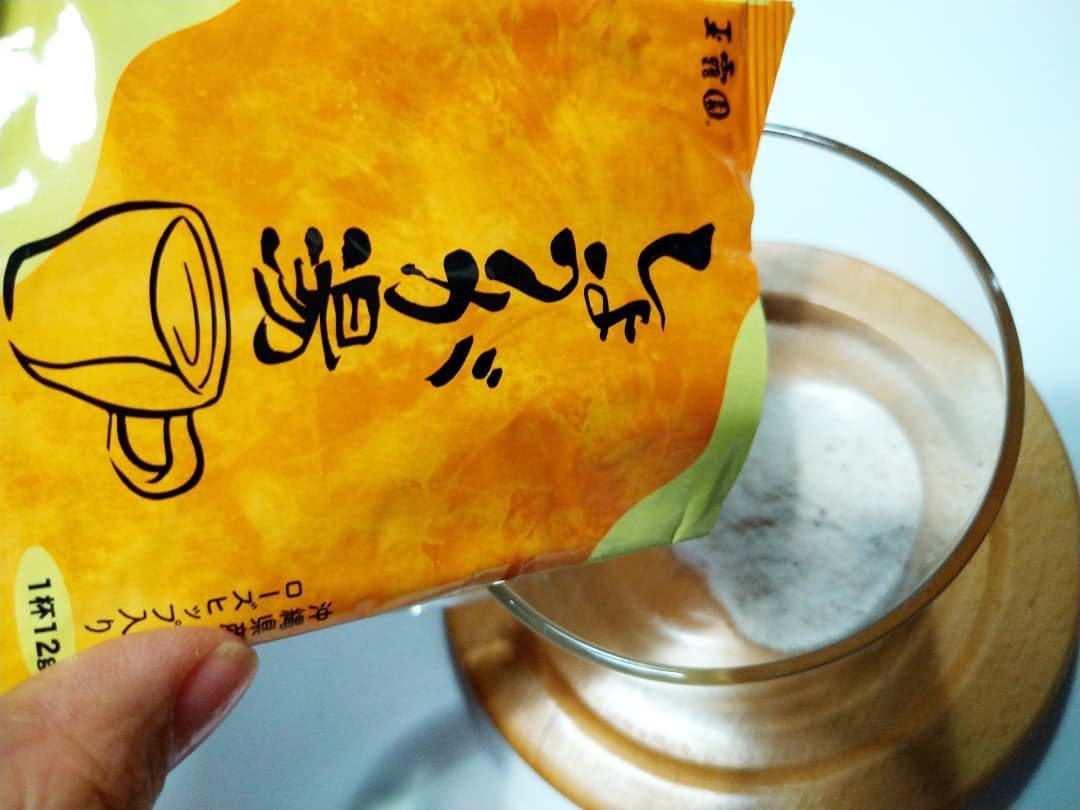 玉露園
しょうが湯
沖縄県産
ローズヒップ入り
1杯12g